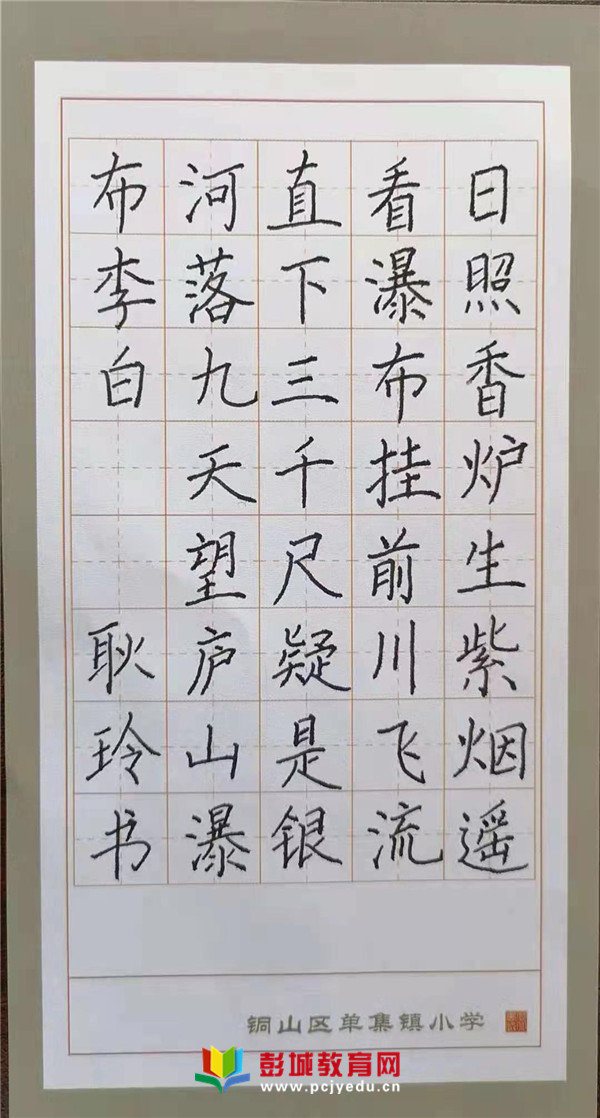 日照香炉生紫烟遥
看瀑布挂前川飞流
直下三千尺疑是银
河落九天望庐山瀑
布李白 耿玲书
铜山区单集镇小学
彭城教育网
www.pcjyedu.cn